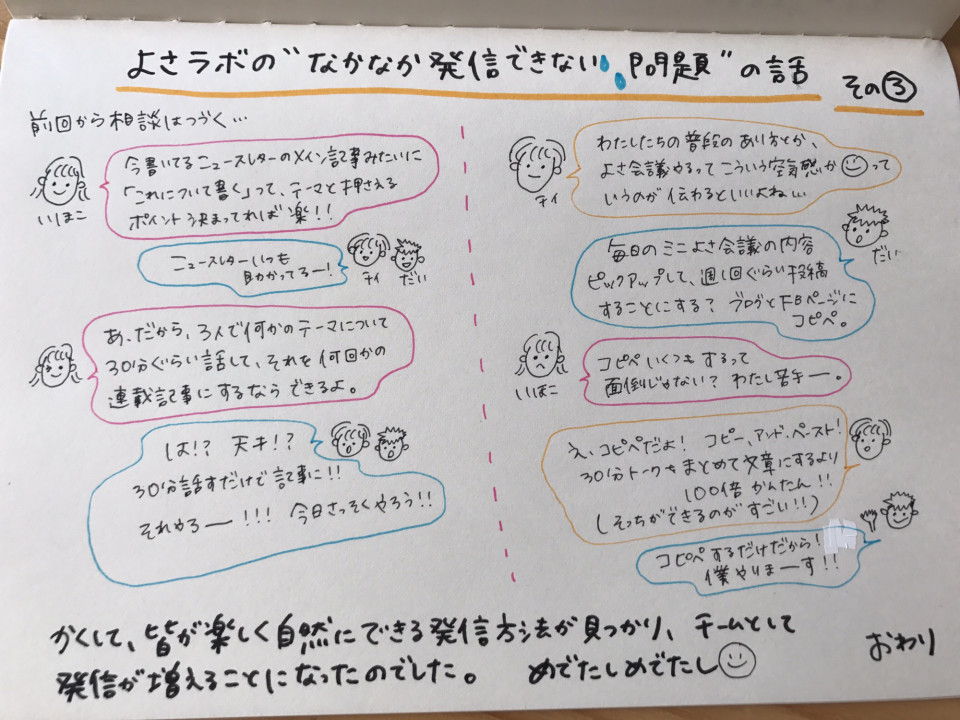 よさラボの"なかなか発信できない問題"の話
その③
前回から相談はつづく…
今書いてるニュースレターのメイン記事みたいに
「これについて書く」って、テーマと押さえる
ポイント決まってれば楽!!
いほこ
ニュースレターいつも
助かってるー!
チイ
だい
あ、だから、3人で何かのテーマについて
30分ぐらい話して、それを何回かの
連載記事にするならできるよ。
は!? 天才!?
30分話すだけで記事に!!
それやるー!!! 今日さっそくやろう!!
わたしたちの普段のあり方とか、
よさ会議やるってこういう空気感か☺って
いうのが伝わるといいよね…
チイ
毎日のミニよさ会議の内容
ピックアップして、週1回ぐらい投稿
することにする? ブログとFBページに
コピペ。
だい
コピペいくつもするって
面倒じゃない? わたし苦手ー。
いほこ
え、コピペだよ! コピー、アンド、ペースト!
30分トークをまとめて文章にするより
100倍かんたん!!
(そっちができるのがすごい!!)
コピペするだけだから!
僕やりまーす!!
かくして、皆が楽しく自然にできる発信方法が見つかり、チームとして
発信が増えることになったのでした。 めでたしめでたし☺
おわり